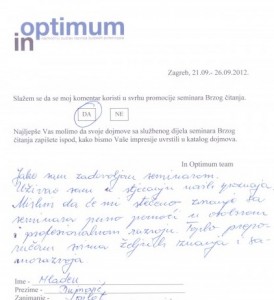 in optimum
Zagreb, 21.09.- 26.09.2012.
Slažem se da se moj komentar koristi u svrhu promocije seminara Brzog čitanja.
DA NE
Najljepše Vas molimo da svoje dojmove sa službenog dijela seminara Brzog
čitanja zapišete ispod, kako bismo Vaše impresije uvrstili u katalog dojmova.
In Optimum team
Jako sam zadovoljan seminarom.
Uživao sam u stjecanju novih
Mislim da će mi stečeno znanje sa
seminara puno pomoći u osobnom
i profesionalnom razvoju. Toplo prepo-
ručam svima željnih znanja i sa-
morazvoja
Ime - Mladen
Prezime -
Zanimanje -